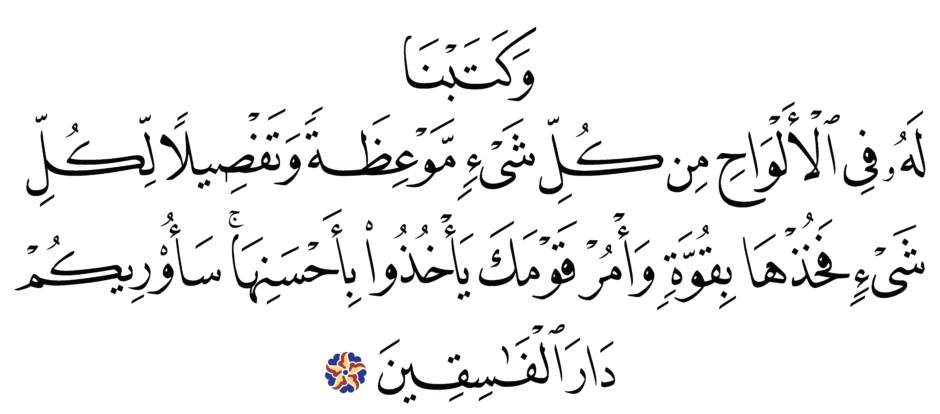 وَكَتَبۡنَا
لَهُۥ فِي ٱلۡأَلۡوَاحِ مِن كُلِّ شَيۡءٖ مَّوۡعِظَةٗ وَتَفۡصِيلٗا لِّكُلِّ
شَيۡءٖ فَخُذۡهَا بِقُوَّةٖ وَأۡمُرۡ قَوۡمَكَ يَأۡخُذُواْ بِأَحۡسَنِهَاۚ سَأُوْرِيكُمۡ
دَارَ ٱلۡفَٰسِقِينَ